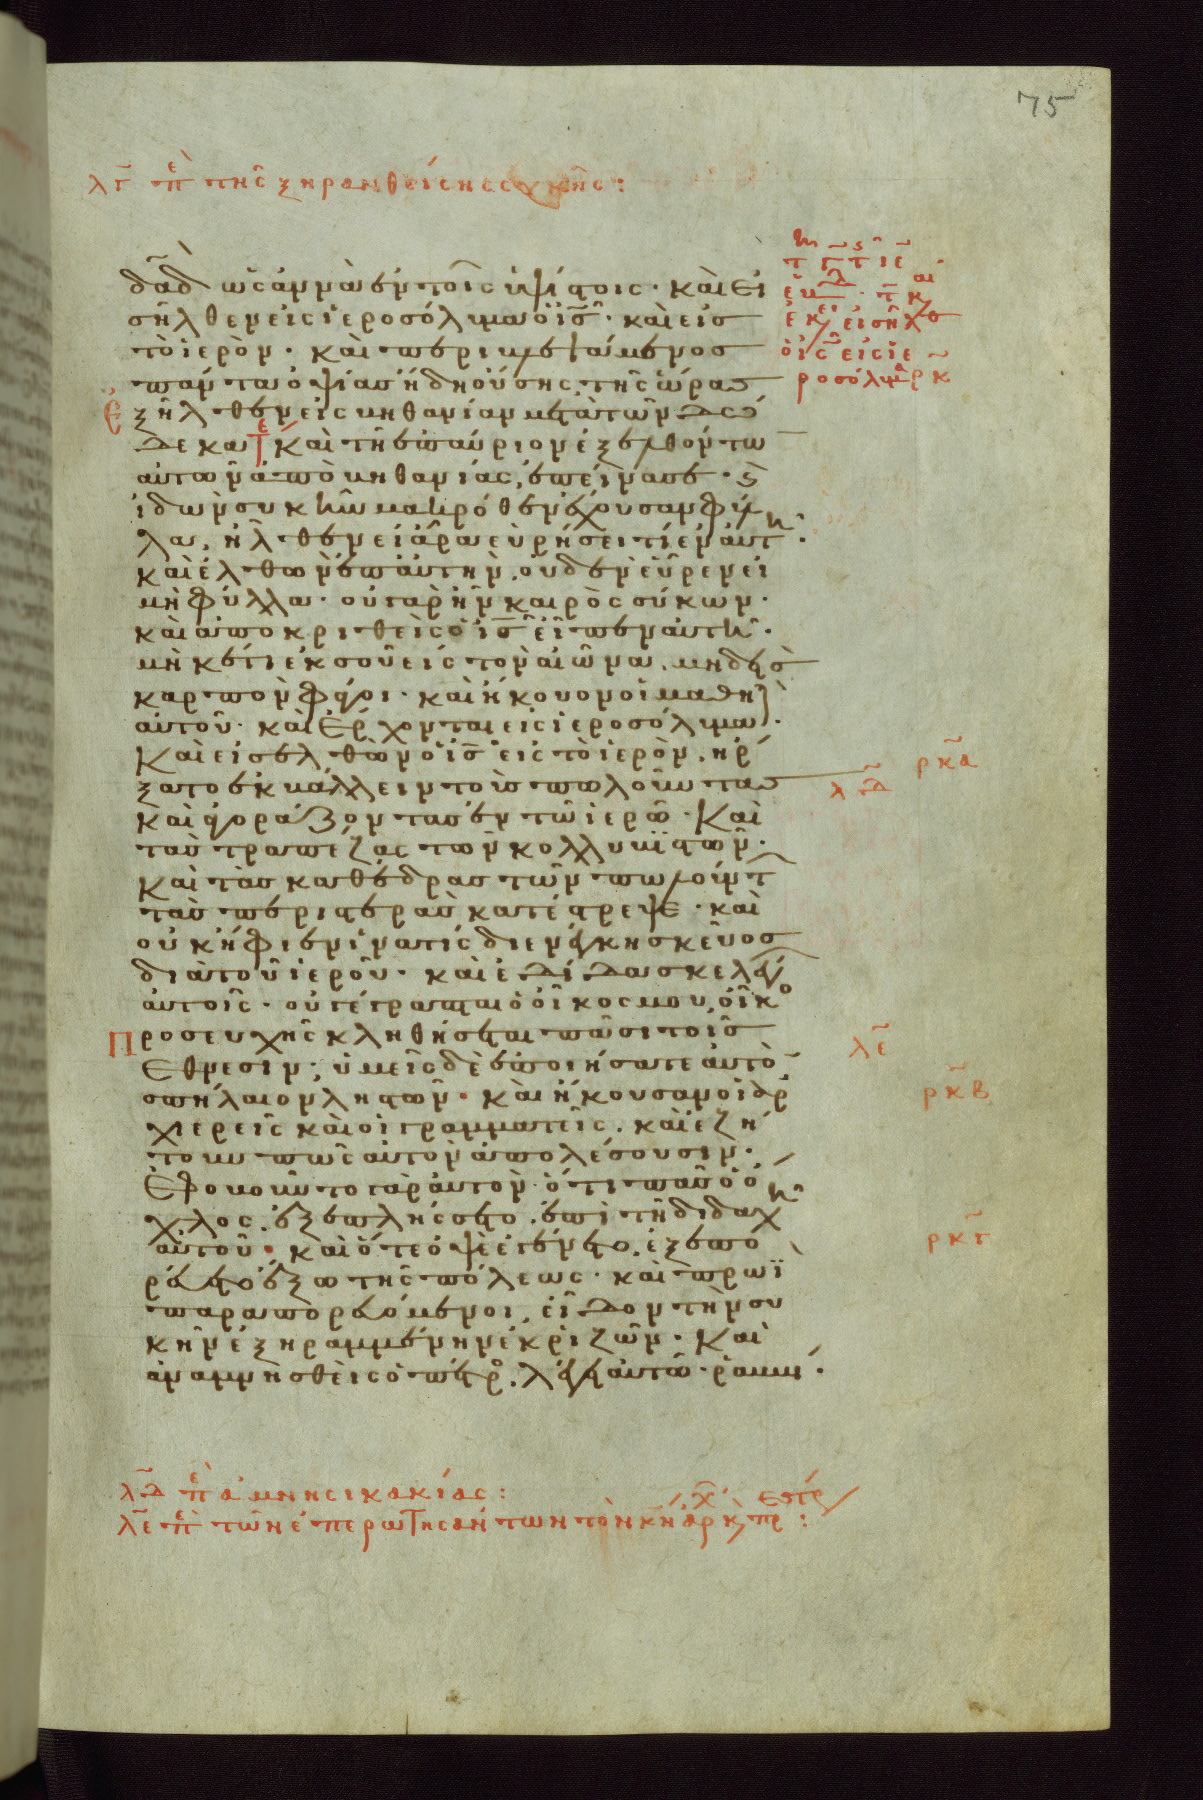 75
λγ πε τῆς ξηρανθείσης συκῆς:
δᾱδ ὡς ἀννὰ ἐν τοῖς ὑψίστοις· καὶ εἰ
σῆλθεν εἰς ἱεροσόλυμα ὁ ις̄· καὶ εἰς
τὸ ἱερόν· καὶ περιβλεψάμενος
πάντα ὀψίας ἤδη οὔσης τῆς ὥρας
ἐξῆλθεν εἰς βηθανίαν μετὰ τῶν δώ
δεκα καὶ τῇ ἐπαύριον ἐξελθόντω
αὐτῶν ἀπὸ βηθανίας, ἐπείνασε· καὶ
ἰδὼν συκῆν μακρόθεν ἔχουσαν φύλ
λα, ἦλθεν εἰ ἄρα εὑρήσει τί ἐν αὐτῇ·
καὶ ἐλθὼν ἐπ αὐτὴν, οὐδὲν εὗρεν εἰ
μὴ φύλλα· οὐ γὰρ ἦν καιρὸς σύκων·
καὶ ἀποκριθεὶς ὁ ις̄ εἶπεν αὐτῇ·
μὴκέτι ἐκ σοῦ εἰς τὸν αἰῶνα, μηδεὶς
καρπὸν φάγοι· καὶ ἤκουον οἱ μαθηταὶ
αὐτοῦ· καὶ ἔρχονται εἰς ἱεροσόλυμα·
Καὶ εἰσελθὼν ὁ ις̄ εἰς τὸ ἱερὸν, ἤρ
ξατο ἐκβάλλειν τοὺς πωλοῦντας
καὶ ἀγοράζοντας ἐν τῷ ἱερῷ· Καὶ
τὰς τραπέζας τῶν κολλυβιστῶν·
καὶ τὰς καθέδρας τῶν πωλούντ
τὰς περιστερὰς κατέστρεψε· καὶ
οὐκ ἤφιεν ἵνα τίς διενέγκη σκεῦος
διὰ τοῦ ἱεροῦ· καὶ ἐδίδασκε λέγων
αὐτοῖς· οὐ γέγραπται ὁ οἶκος μου, οἶκο
Προσευχῆς κληθήσεται πᾶσι τοῖς
ἔθνεσιν; ὑμεῖς δὲ ἐποιήσατε αὐτὸ
σπήλαιον ληστῶν· καὶ ἤκουσαν οἱ ἀρ
χιερεῖς καὶ οἱ γραμματεῖς, καὶ ἐζή
τουν πῶς αὐτὸν ἀπολέσουσιν·
ἐφοβοῦντο γὰρ αὐτὸν· ὅτι πᾶς ὁ ὄ
χλος, ἐξεπλήσσετο, ἐπὶ τῇ διδαχῇ
αὐτοῦ· καὶ ὅτε ὀψὲ ἐγένετο, ἐξεπο
ρεύετο ἔξω τῆς πόλεως· καὶ πρωῒ
παραπορευόμενοι, εἶδον τὴν συ
κῆν ἐξηραμμένην ἐκ ριζῶν· Καὶ
ἀναμνησθεὶς ὁ πέτρο, λέγει αὐτῷ· ραββί·
ὁ ις̄ εἰς ἱε
ροσόλυμα ρκ
ρκα
λδ
λε
ρκβ
ρκγ
λδ πε ἀμνησικακίας:
λε πε τῶν ἐπερωτησάντων τὸν κν